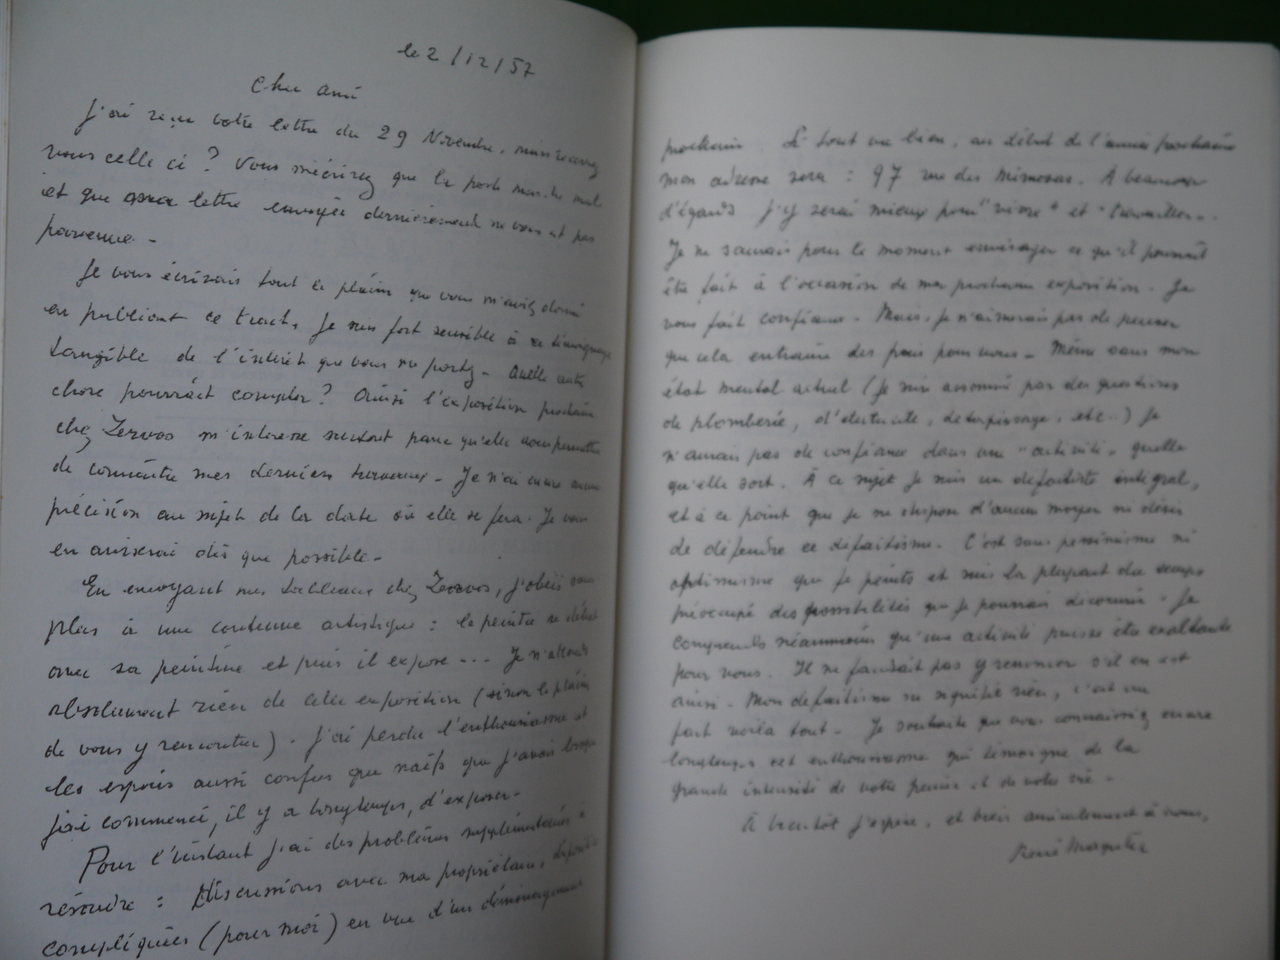 le 2/12/57
Cher ami
J'ai reçu votre lettre du 29 Novembre, mais recevrez
vous celle ci ? Vous m'écrivez que la poste marche mal
et que ma lettre envoyée dernièrement ne vous est pas
parvenue -
Je vous écrivais tout le plaisir que vous m'aviez donné
en publiant ce tract, Je suis fort sensible à ce témoignage
tangible de l'intérêt que vous me portez - Quelle autre
chose pourrait compter ? Ainsi l'exposition prochaine
chez Zervos m'intéresse surtout parce qu'elle vous permettra
de connaître mes derniers travaux - Je n'ai aucune
précision au sujet de la date où elle se fera. Je vous
en aviserai dès que possible -
En envoyant mes tableaux chez Zervos, j'obéis sans
plus à une coutume artistique : le peintre se débat
avec sa peinture et puis il expose --- Je n'attends
absolument rien de cette exposition (sinon le plaisir
de vous y rencontrer). J'ai perdu l'enthousiasme et
les espoirs aussi confus que naïfs que j'avais lorsque
j'ai commencé, il y a longtemps, d'exposer -
Pour l'instant j'ai des problèmes supplémentaires à
résoudre : Discussions avec ma propriétaire,
compliquées (pour moi) en vue d'un déménagement
prochain. Si tout va bien, au début de l'année prochaine
mon adresse sera : 97 rue des Mimosas. À beaucoup
d'égards j'y serai mieux pour "vivre" et "travailler".
Je ne saurais pour le moment envisager ce qu'il pourrait
être fait à l'occasion de ma prochaine exposition. Je
vous fait confiance. Mais, je n'aimerais pas de penser
que cela entraine des frais pour vous - Même sans mon
état mental actuel (Je suis assommé par des questions
de plomberie, d'électricité, de tapissage, etc..) Je
n'aurais pas de confiance dans une "activité" quelle
qu'elle soit. À ce sujet je suis un défaitiste intégral,
et à ce point que je ne dispose d'aucun moyen ni désir
de défendre ce défaitisme. C'est sans pessimisme ni
optimisme que je peints et suis la plupart du temps
préoccupé des possibilités que je pourrais découvrir. Je
comprends néanmoins qu'une activité puisse être exaltante
pour vous. Il ne faudrait pas y renoncer s'il en est
ainsi. Mon défaitisme ne signifie rien, c'est un
fait voilà tout. Je souhaite que vous connaissiez encore
longtemps cet enthousiasme qui témoigne de la
grande intensité de votre pensée et de votre vie.
À bientôt j'espère, et bien amicalement à vous,
René Magritte